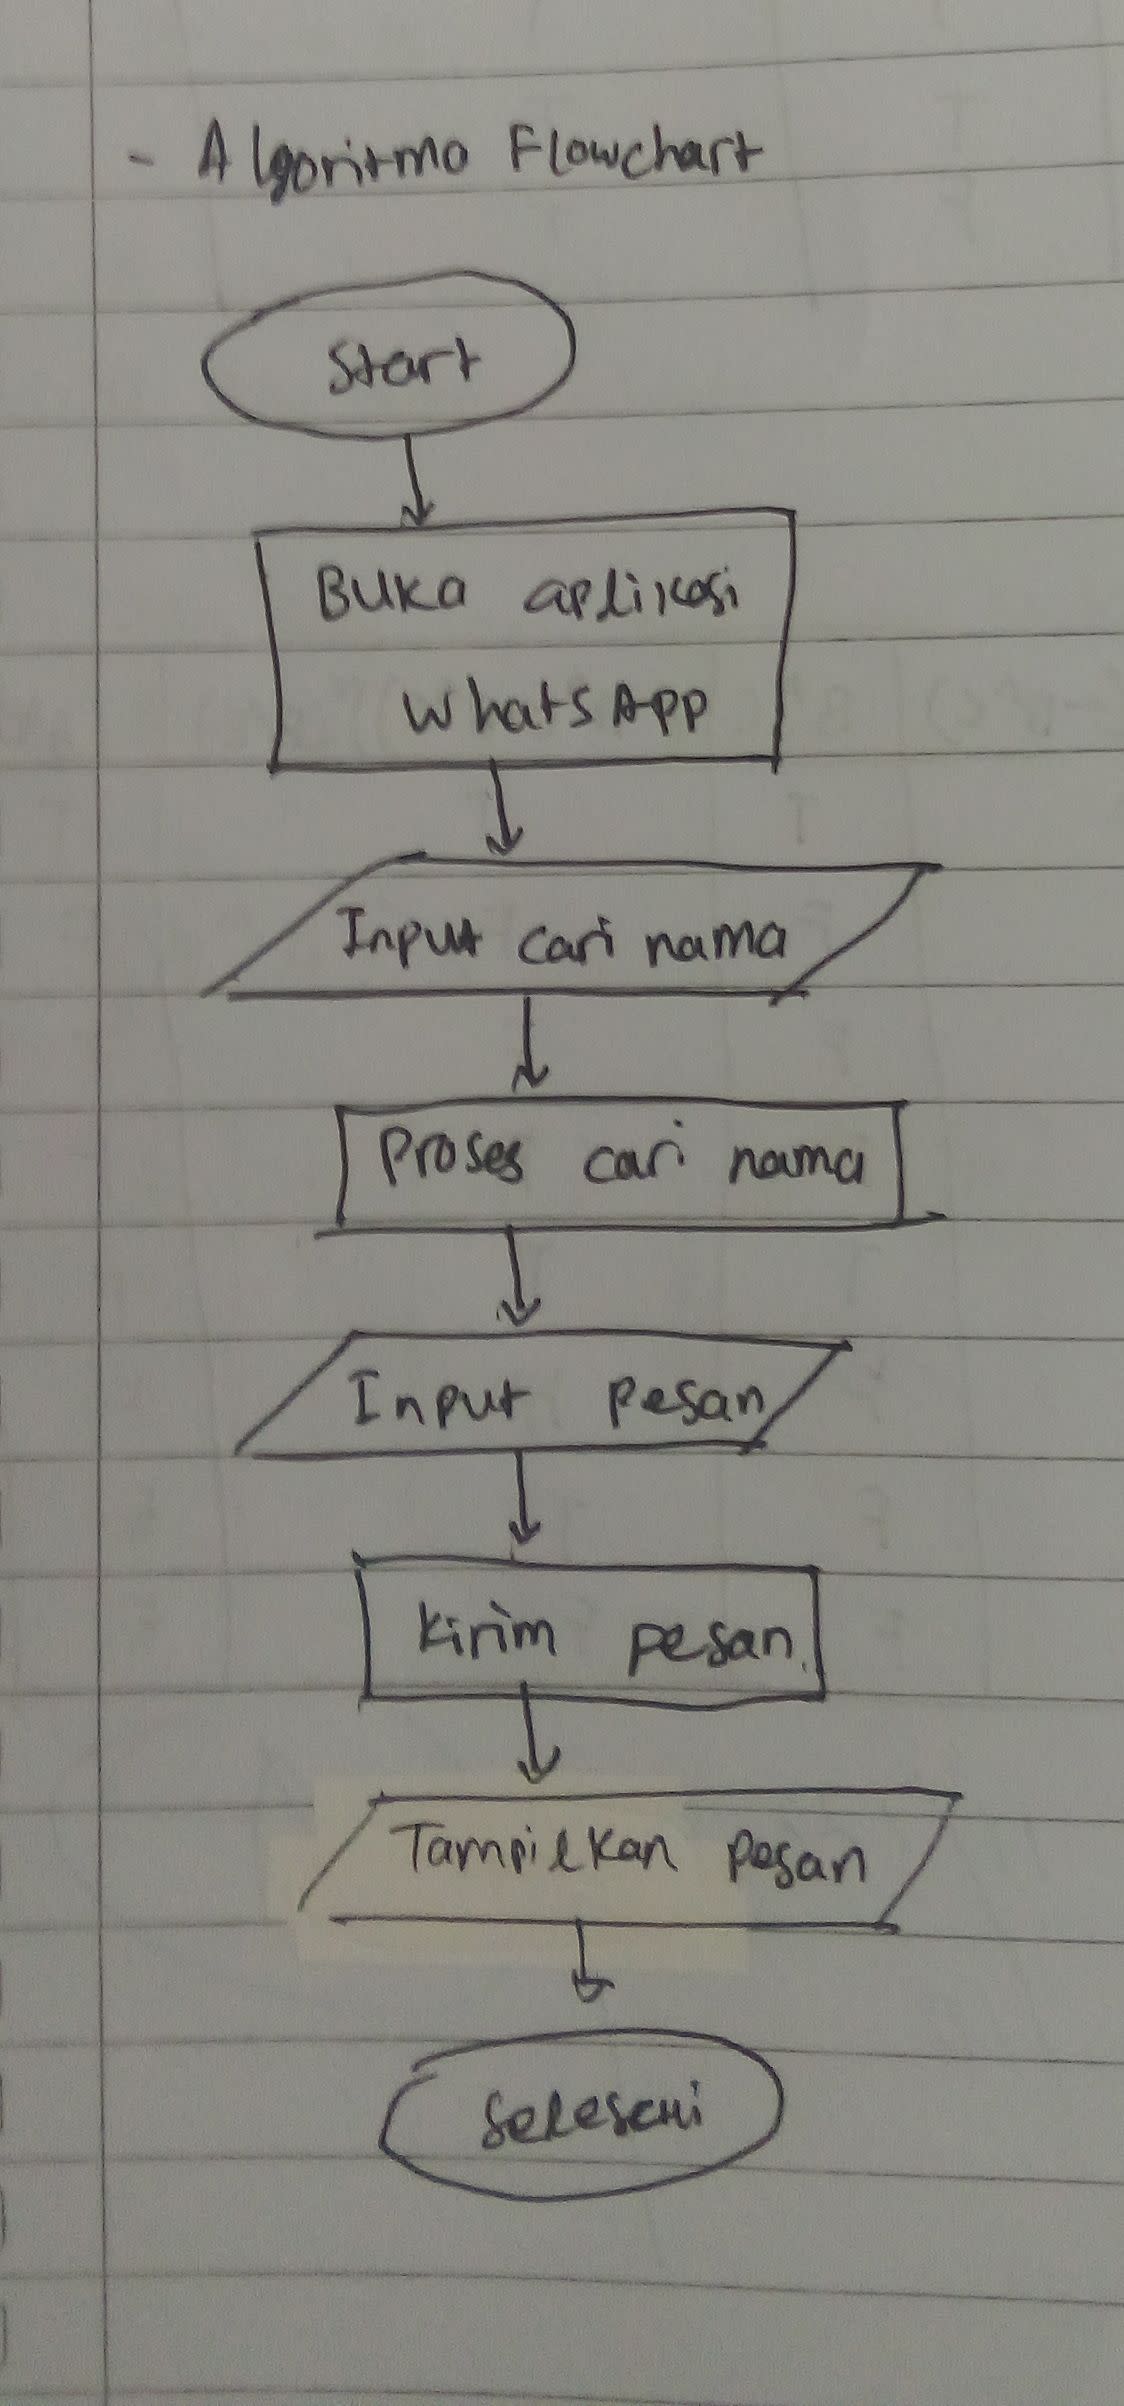 - Algoritma Flowchart
Start
Buka aplikasi
WhatsApp
Input cari nama
Proses cari nama
Input pesan
Kirim pesan.
Tampilkan pesan
Selesai